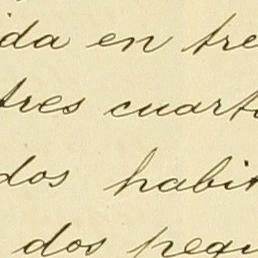 ida en tre
tres cuarto
dos habit
dos pequ